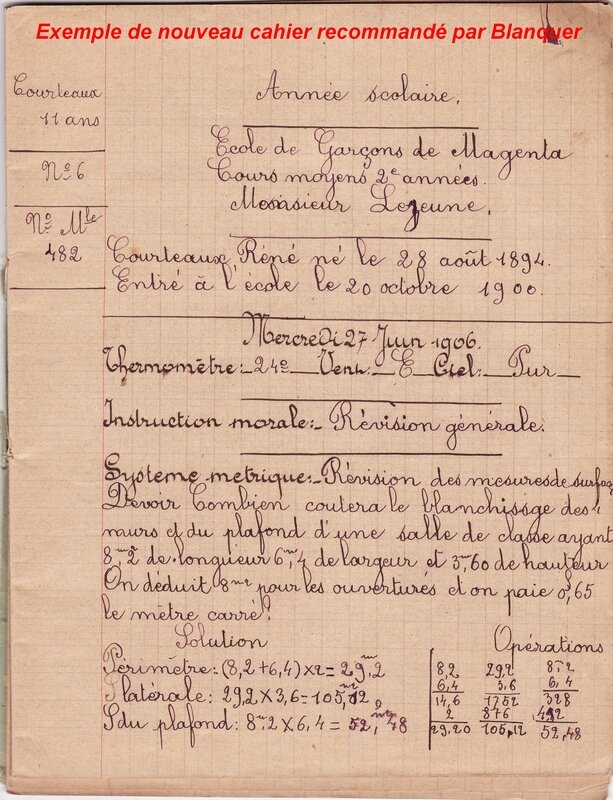 Exemple de nouveau cahier recommandé par Blanquer
Courteaux
11 ans
Nº 6
Nº Mle
482
Année scolaire.
Ecole de Garçons de Magenta
Cours moyens 2e années.
Monsieur Lejeune.
Courteaux Réné né le 28 août 1894.
Entré à l'école le 20 octobre 1900.
Mercredi 27 Juin 1906.
Thermomètre:_24º_Vent:_E_Ciel:_Pur_
Instruction morale:_Révision générale.
Systeme metrique:_Révision des mesures de surfac
Devoir Combien coutera le blanchissge des 4
murs et du plafond d'une salle de classe ayant
8m,2 de longueur 6m,4 de largeur et 3m,60 de hauteur
On déduit 8m2 pour les ouvertures et on paie 0,65
le mètre carré?
Solution
Périmètre: (8,2 + 6,4) x 2 = 29m,2
S latérale: 29,2 x 3,6 = 105,12
S du plafond: 8m,2 x 6,4 = 52,48
Opérations
8,2 29,2 8,2
6,4 3,6 6,4
14,6 1752 328
2 876 492
29,20 105,12 52,48